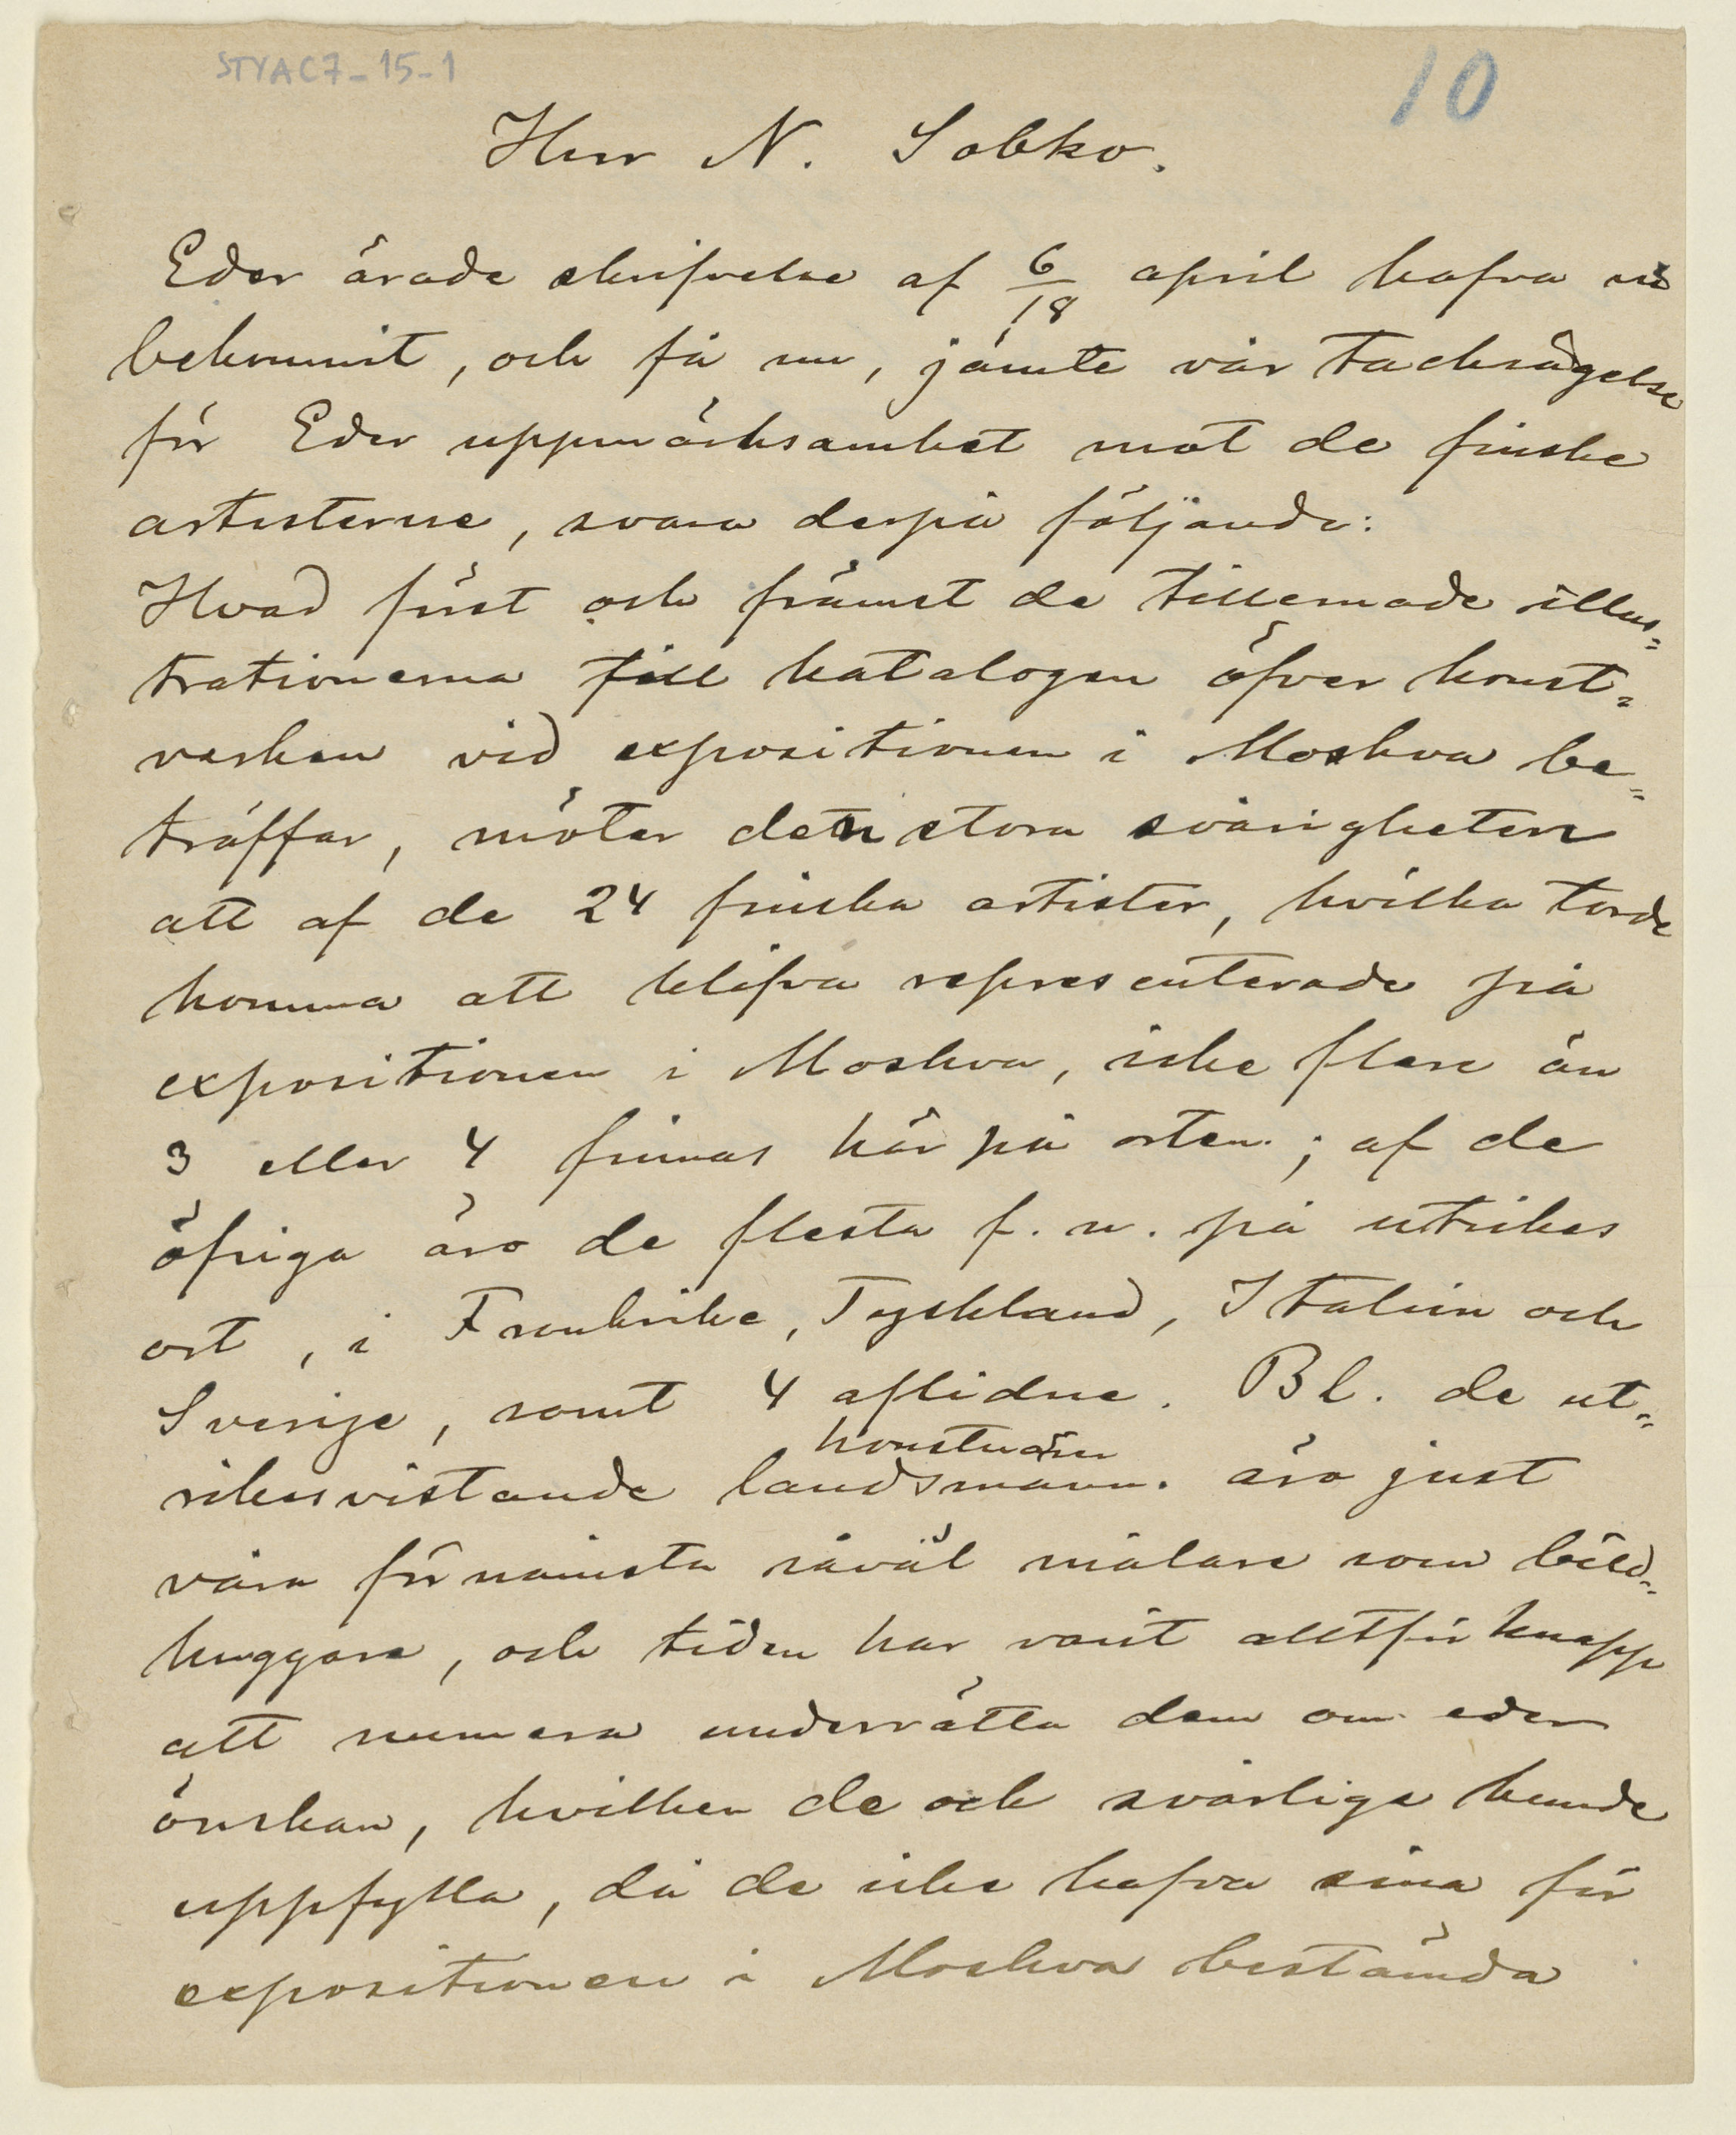 STYAC7-15-1
10
Herr N. Sobko.
Eder ärade skrifvelse af 6/18 april hafva vi
bekommit, och få nu, jämte vår tacksägelse
för Eder uppmärksamhet mot de finske
artisterne, svara derpå följande:
Hvad först och främst de tillernade illus=
trationerna till katalogen öfver konst=
verken vid expositionen i Moskva be=
träffar, möter den stora svårigheten
att af de 24 finska artister, hvilka torde
komma att blifva representerade på
expositionen i Moskva, icke flere än
3 eller 4 finnas här på orten; af de
öfriga äro de flesta f. n. på utrikes
ort, i Frankrike, Tyskland, Italien och
Sverige, samt 4 aflidne. Bl. de ut=
konstnärer
rikesvistande landsmänn. äro just
våra förnämsta såväl målare som bild=
huggare, och tiden har varit alltför knapp
att numera underrätta dem om eder
önskan, hvilken de och svårligen kunde
uppfylla, då de icke hafva sina för
expositionen i Moskva bestämda